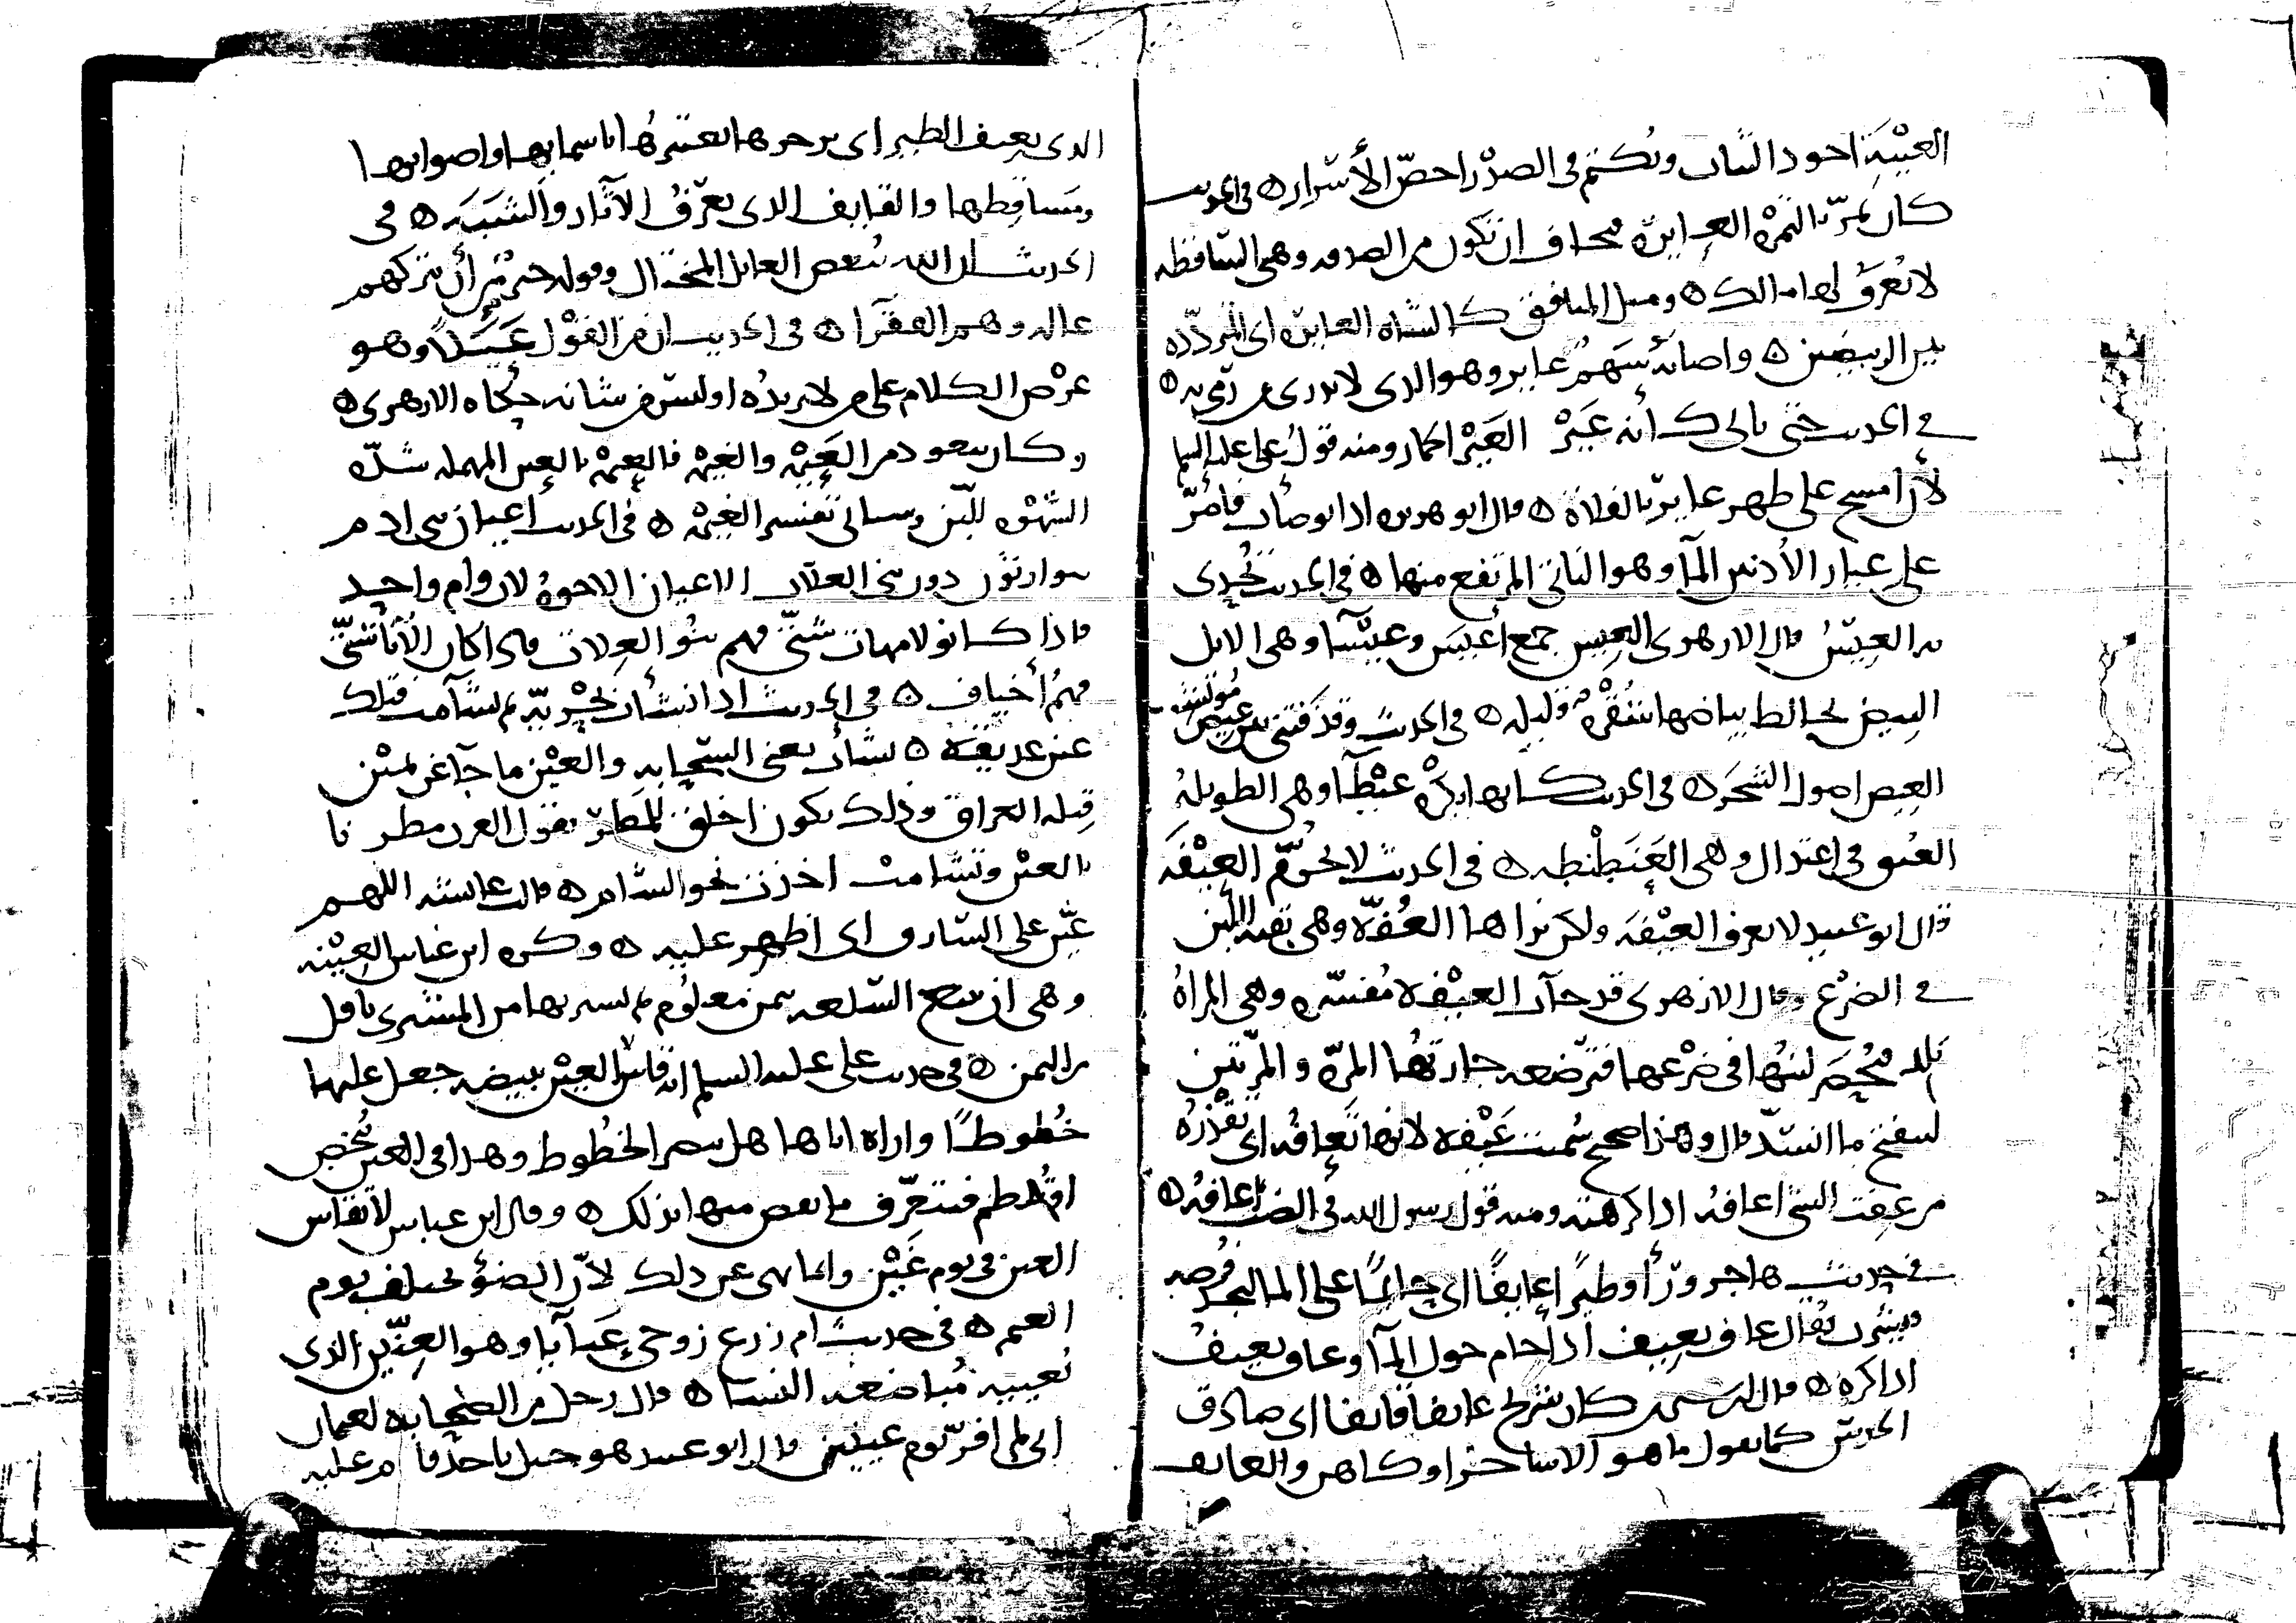 العَيْبَة اجود الثياب ويُكتَم في الصدْر اخصّ الأسْرار ه في الحديث
كان يَمرّ بالتمرة العايرة مخافة ان تكون من الصدقه وهي الساقطه
لا يُعرَف لها مالك ه ومثل المنافق كالشاة العايرة اي المتردّده
بين الربيضين ه واصابه سَهمٌ عاير وهو الذي لا يدرى من رمى به ه
في الحديث حتى يالى كأنه عَيْر العَيْر الحمار ومنه قول على عليه السلم
لأن امسح على ظهر عايرٍ بالفلاة ه قال ابو هريره اذا توضأت فأمرّ
على عيار الأذنين المآ وهو الناتي المرتفع منها ه في الحديث تُخدى
به العِيْسُ قال الازهرى العِيس جمع أعيَس وعَيْسا وهى الابل
البيض يخالط بياضها شُقْرة قليله ه في الحديث وقذفتنى بين عِيص مُؤتشب
العِيص اصول الشجر ه في الحديث كانها بكْرة عَيْطآ وهى الطويلة
العنق في اعتدال وهى العَنَطْنَطه ه في الحديث لا تُحرّم العَيْفَة
قال ابو عبيد لا نعرف العَيْفَه ولكن نراها العُفّة وهى بقيه اللبن
في الضرْع وقال الازهرى قد جآت العيْفة مُفسّره وهى المراة
تلد فيُحْصَر لبنُها في ضرْعها فترضعه جارتها المرّة والمرّتين
لينفتح ما انسدّ قال وهذا صحيح سُميت عَيْفة لانها تَعافُه اى تقذرُه
من عِفت الشى اعافُه اذا كرهته ومنه قول رسول الله في الضب اعافُه ه
في حديث هاجر ورأوا طيرًا عايفًا اى حايمًا على الما ليجد فُرصه
فيشرب يُقال عاف يعيف اذا حام حول المآ وعاف يعيف
اذا كره ه قال ابن سيرين كان شريح عايفًا قايفًا اى صادق
الحديث كما يقول ما هو الا ساحر او كاهن والعايف
الذى يعيف الطير اى يزجرها يعتبرُها باسمايها واصواتها
ومَساقِطها والقايف الذى يعرّفُ الآثار والشبَه ه في
الحديث ان الله يُبغض العايل المختال وقوله خيرٌ من أن تتركهم
عاله وهم الفقرآ ه في الحديث ان من القوْل عَيَلًا وهو
عرْض الكلام على من لا يريدُه اوليس من شانه حكاه الازهرى ه
وكان يتعوذ من العَيْمة والغَيْمة فالعيْمة بالعين المهمله شدّة
الشهْوة للّبن وسياتى تفسير الغيْمة ه في الحديث أعيان بنى ادم
يتوارثون دون بنى العلات الاعيان الاخوةُ لاب وام واحد
فاذا كانوا لامهات شتّى فهم بنُو العِلات فاذا كان الابآ شتّى
فهمُ أخياف ه في الحديث اذا نشأت بَحْريّة ثم تشآمت فتلك
عين غديقة ه نشأت يعنى السحابه والعيْن ما جآ عن يمين
قِبله العراق وذلك يكون اخلق للمَطر يقول العرب مطرنا
بالعين وتشامت اخذت نحو الشام ه قالت عايشه اللهم
عيّن على السارق اى اظهر عليه ه وكره ابن عباس العِيْنه
وهى ان يبيع السلعه بثمن معلوم ثم يشتريها من المشترى باقل
من الثمن ه في حديث على عليه السلم انه قاسَ العيْن ببيضه جعل عليها
خُطوطًا واراه اياها هل يبصر الخطوط وهذا في العين تُبخَص
او تُلطم فيتعرّف ما نقص منها بذلك ه وقال ابن عباس لا تقاس
العين في يوم غَيْن وانما نهى عن ذلك لانّ الضوْء يختلف يوم
الغيم ه في حديث ام زرع زوجى عَيَاياء وهو العِنّين الذى
تُعييه مُباضعه النسا ه قال رجل من الصحابه لعثمان
انى لم افرّ يوم عينين قال ابو عبيد هو جبل باحد قام عليه